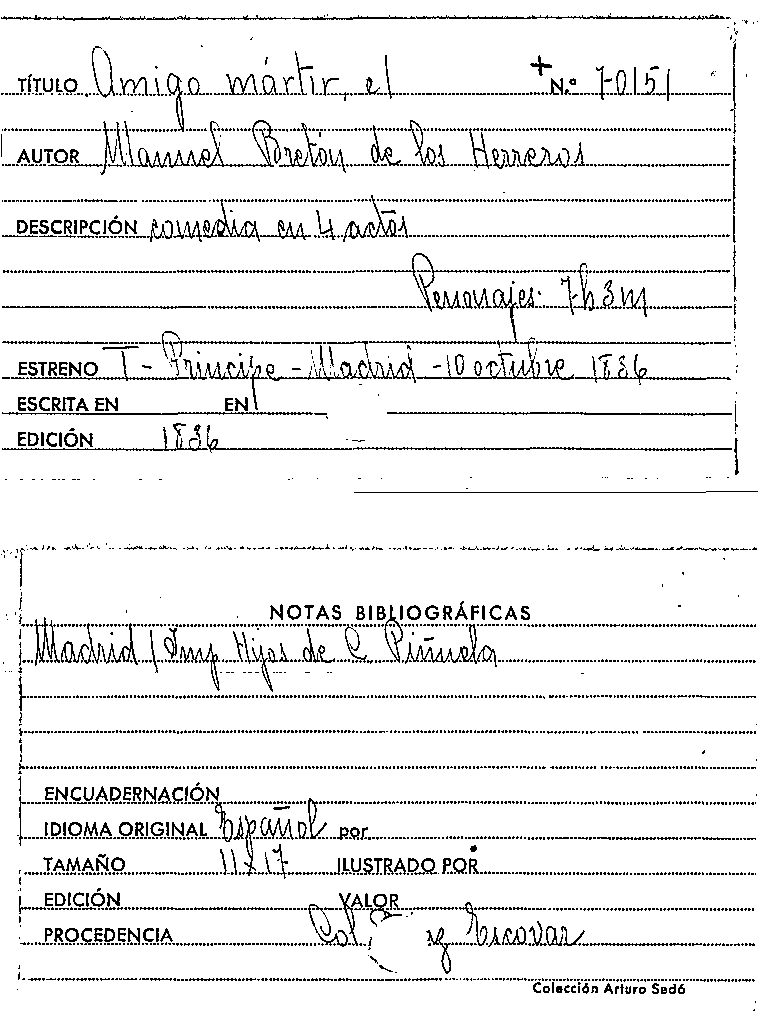 TÍTULO Amigo mártir, el + N.º 7-0151
AUTOR Manuel Bretón de los Herreros
DESCRIPCIÓN comedia en 4 actos
Personajes: 7h 3m
ESTRENO T - Principe - Madrid - 10 octubre 1836
ESCRITA EN EN
EDICIÓN 1836
NOTAS BIBLIOGRÁFICAS
Madrid / Imp Hijos de C. Piñuela
ENCUADERNACIÓN
IDIOMA ORIGINAL Español por
TAMAÑO 11 x 17 ILUSTRADO POR
EDICIÓN VALOR
PROCEDENCIA Col Escovar
Colección Arturo Sedó